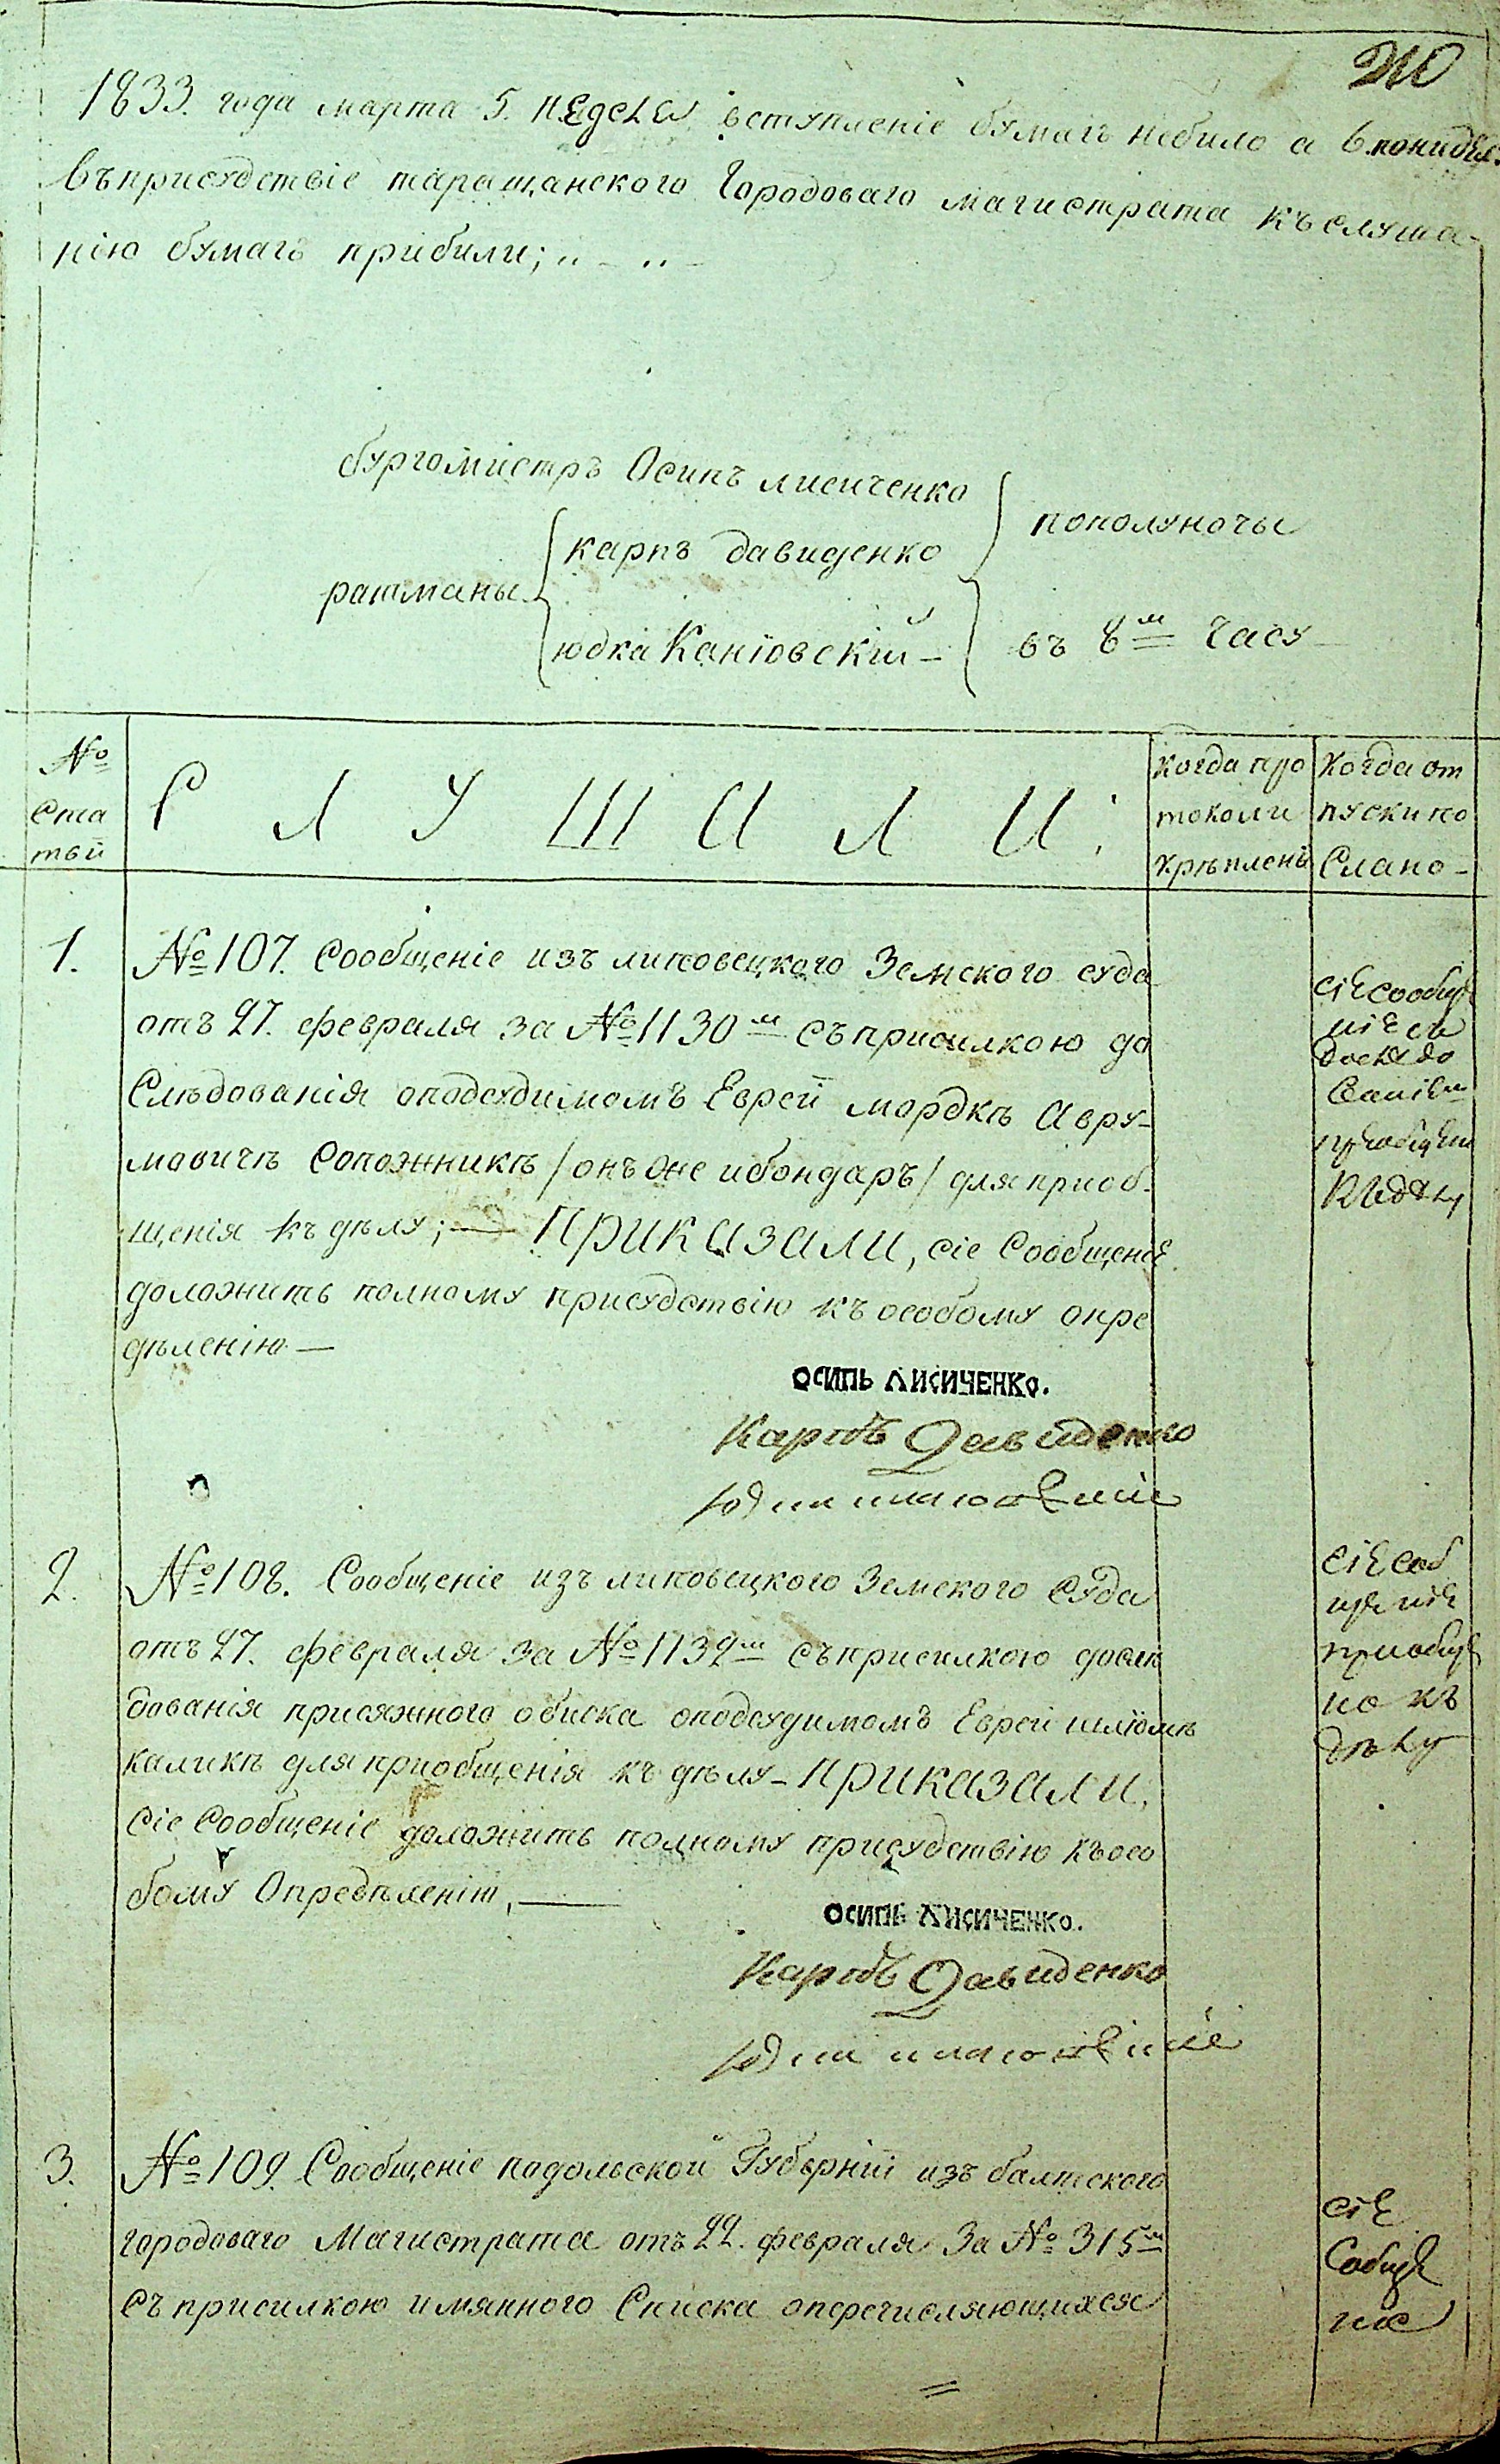 210
1833. года марта 5. неделя вступленіе бумагъ небило а 6. понидел:
въприсудствіе таращанского Городоваго магистрата къслуша-
нію бумагъ прибили;
бургомистръ Осипъ лисиченко
карпъ давиденко
пополуночы
ратманы
юдка Каніовскій
въ 8м часу
№ Ста тьй
СЛУШАЛИ:
когда про токоли крѣплени
Когда от пуски по Слано
1.
№ 107. Сообщеніе изъ липовецкого Земского суда
отъ 27. февраля за № 1130м съприсилкою до
Слѣдованія оподсудимомъ Еврей мордкѣ Авру-
мовичѣ Сапожникѣ /онъ же ибондаръ/ для приоб-
щенія къ дѣлу; ПРИКАЗАЛИ, сіе Сообщеніе
доложить полному присудствію къ особому опре
дѣленію
сіе сообще
ніе съ
дослѣдо
Ваніем
приобщен
К дѣлу
ОСИПЬ ЛИСИЧЕНКО.
Карпъ Давиденко
2.
№ 108. Сообщеніе изъ липовецкого Земского Суда
отъ 27. февраля за № 1132м съприсилкою дослѣ
дованія присяжного обиска оподсудимомъ Еврей шліомѣ
каликѣ для приобщенія къ дѣлу ПРИКАЗАЛИ,
Сіе Сообщеніе доложить полному присудствію къ осо
бому Опредѣленію,
сіе соб
щеніе
приобще
но къ
дѣлу
ОСИПЬ ЛИСИЧЕНКО.
Карпъ Давиденко
3.
№ 109. Сообщеніе подольской Губерніи изъ балтского
городоваго Магистрата отъ 22. февраля За № 315м
съ присилкою имянного Списка оперечисляющихся
сіе
Собще
ніе